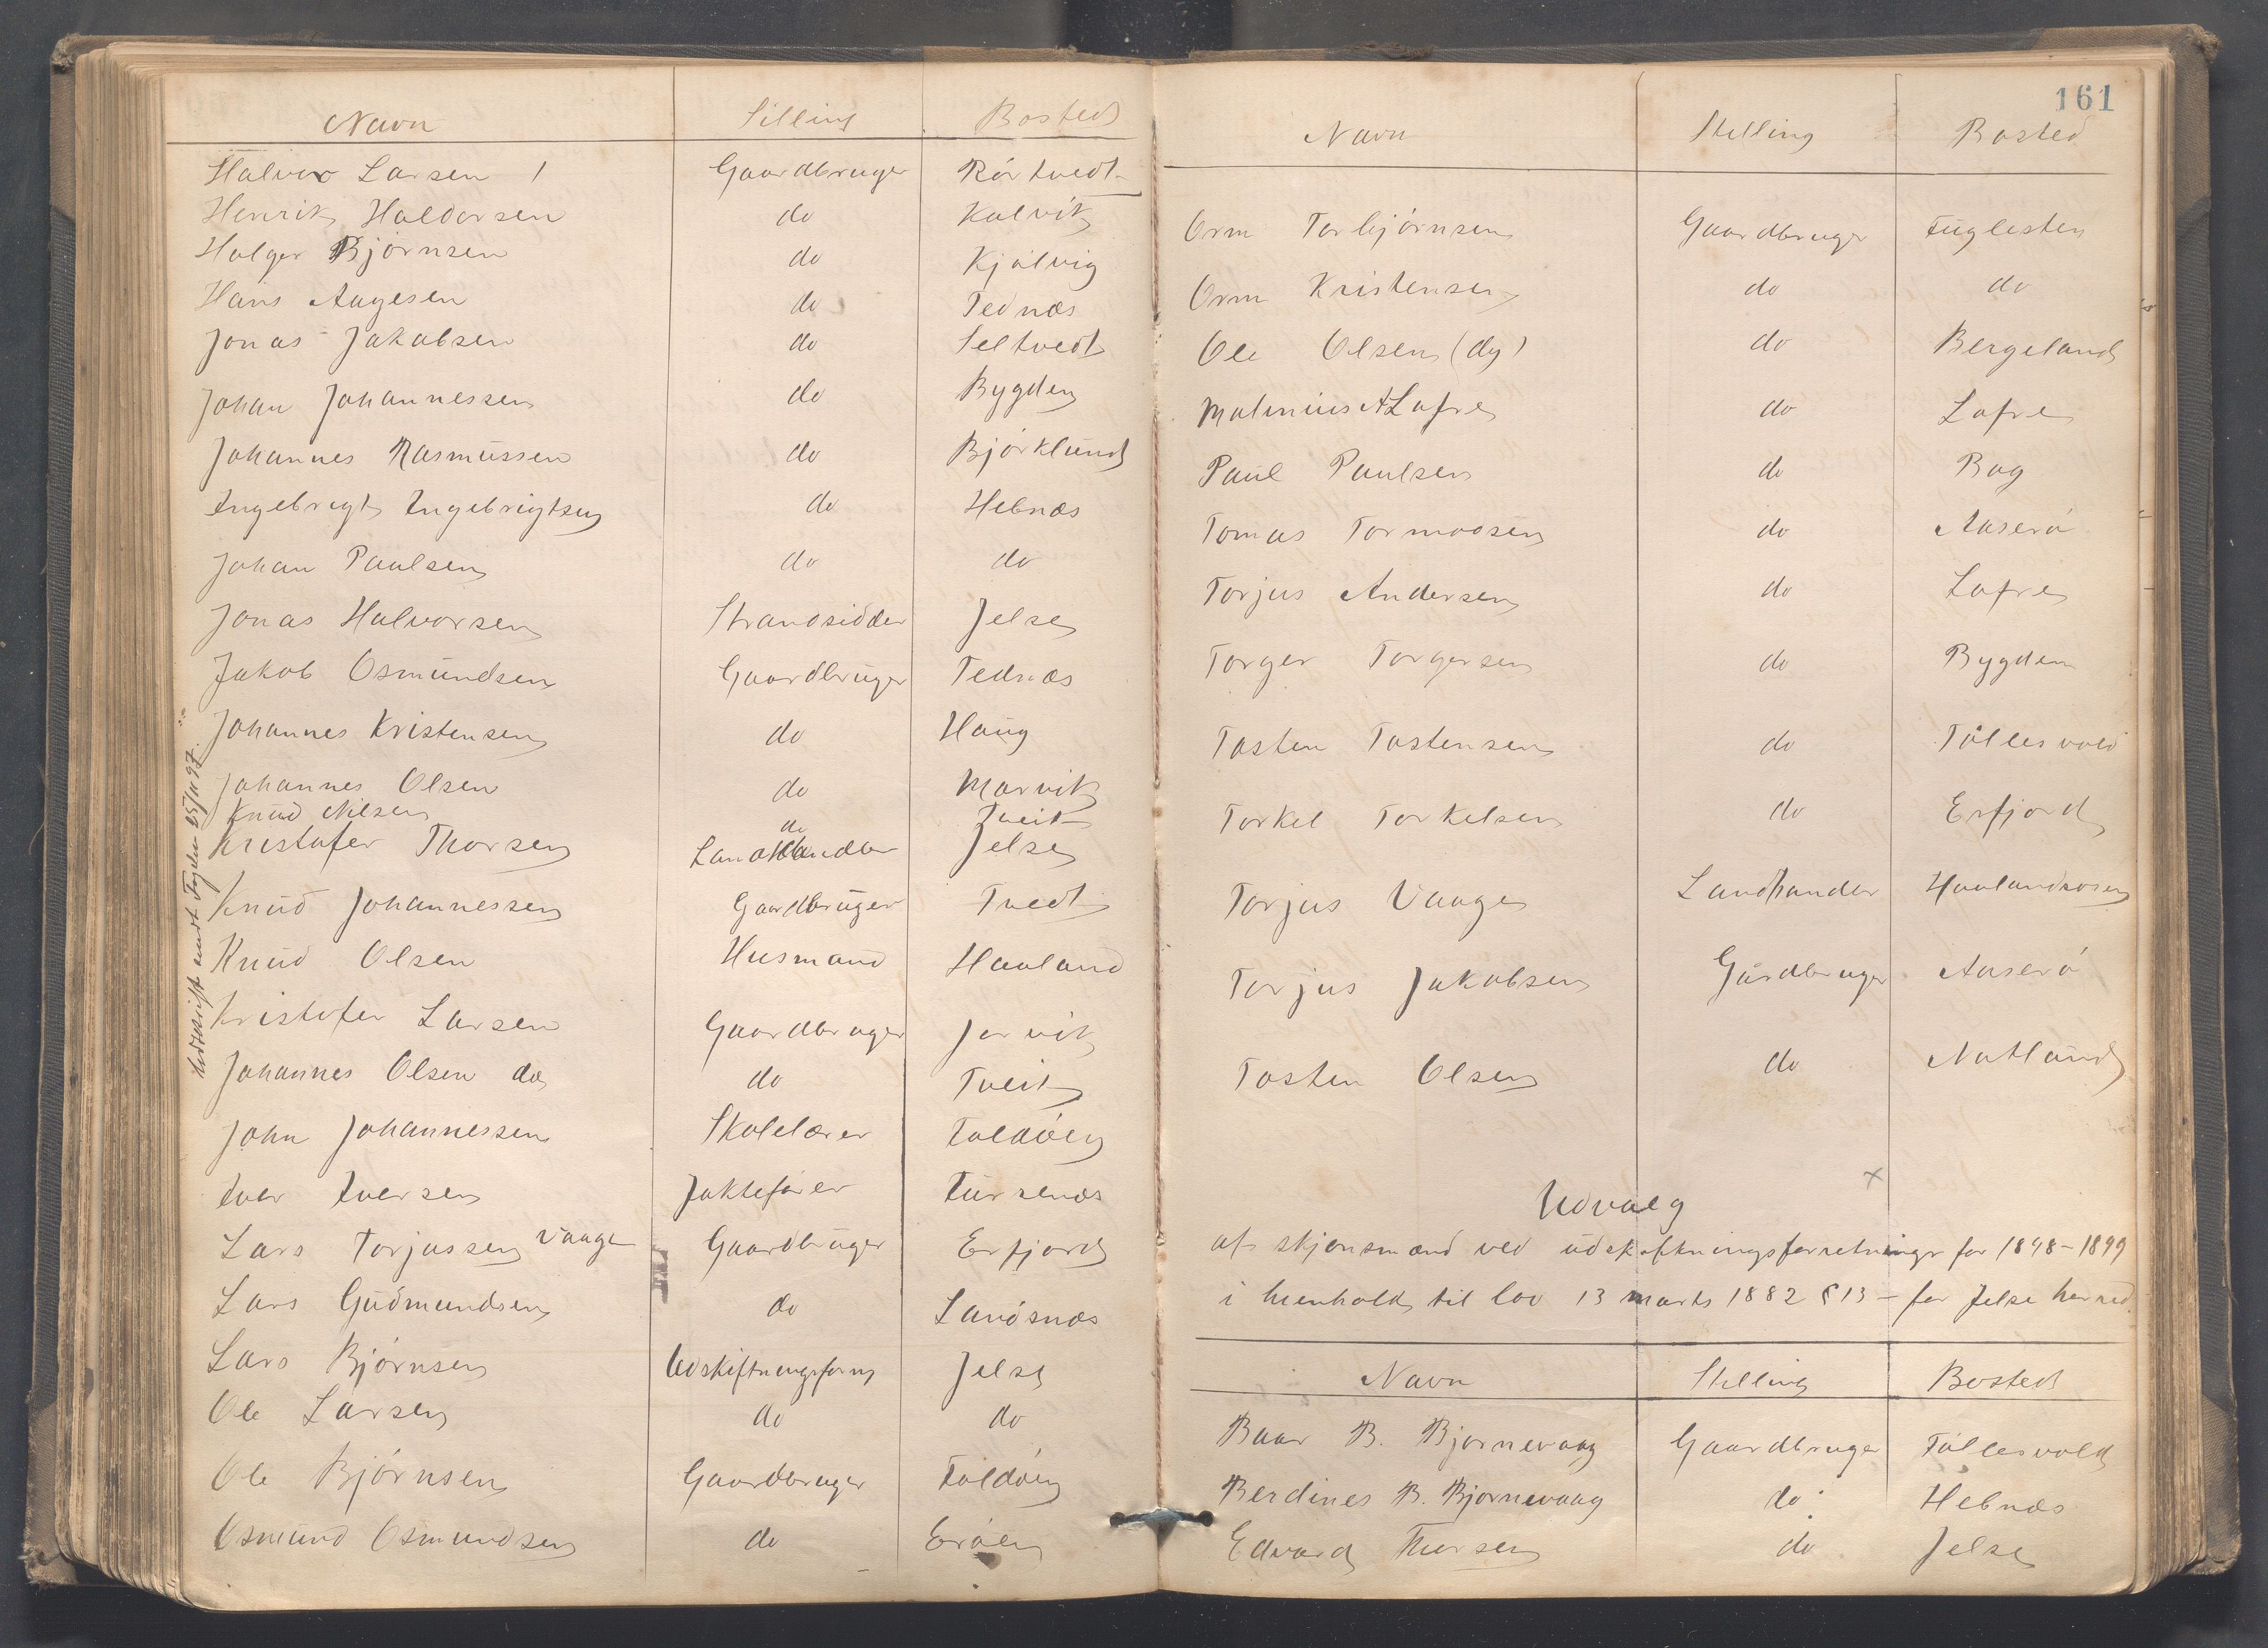 Navn Stilling Bosted
Halvor Larsen Gaardbruger Rörtvedt
Henrik Haldorsen do Kalvik
Holger Björnsen do Kjölvig
Hans Aagesen do Tednæs
Jonas Jakobsen do Seltvedt
Johan Johannessen do Bygden
Johannes Rasmussen do Björklund
Ingebrigt Ingebrigtsen do Hebnæs
Johan Paulsen do do
Jonas Halvorsen Strandsidder Jelse
Jakob Osmundsen Gaardbruger Tednæs
Johannes Kristensen do Haug
Johannes Olsen do Marvik
Knud Nilsen do Tveit
Kristofer Thorsen Landhandler Jelse
Knud Johannessen Gaardbruger Tvedt
Knud Olsen Husmand Haaland
Kristofer Larsen Gaardbruger Jørvik
Johannes Olsen do Tveit
John Johannessen Skolelærer Foldöen
Iver Iversen Jaktefører
Lars Torjussen Vaage Gaardbruger Erfjord
Lars Gudmundsen do Sandsnæs
Lars Björnsen Udskiftningsform Jelse
Ole Larsen do do
Ole Björnsen Gaardbruger Foldöen
Osmund Osmundsen do Eröen
Udskrift sendt Fogden 25/11 97.
161
Navn Stilling Bosted
Orm Torbjörnsen Gaardbruger Fuglesten
Orm Kristensen do do
Ole Olsen (dy) do Bergeland
Matinius A Lofre do Lofre
Paul Paulsen do Bog
Tomas Tormodsen do Aaserö
Torjus Andersen do Lofre
Torger Torgersen do Bygden
Tosten Tostensen do Föllesvold
Torkel Torkelsen do Erfjord
Torjus Vaage Landhandler Haalandsosen
Torjus Jakobsen Gårdbruger Aaserö
Tosten Olsen do Natland
Udvalg
af skjønsmænd ved udskiftningsforretninger for 1898-1899
i henhold til lov 13 marts 1882 § 13 - for Jelse herred.
Navn Stilling Bosted
Baar B. Bjørnevaag Gaardbruger Föllesvold
Berdines B. Bjørnevaag do Hebnæs
Edvard Thorsen do Jelse